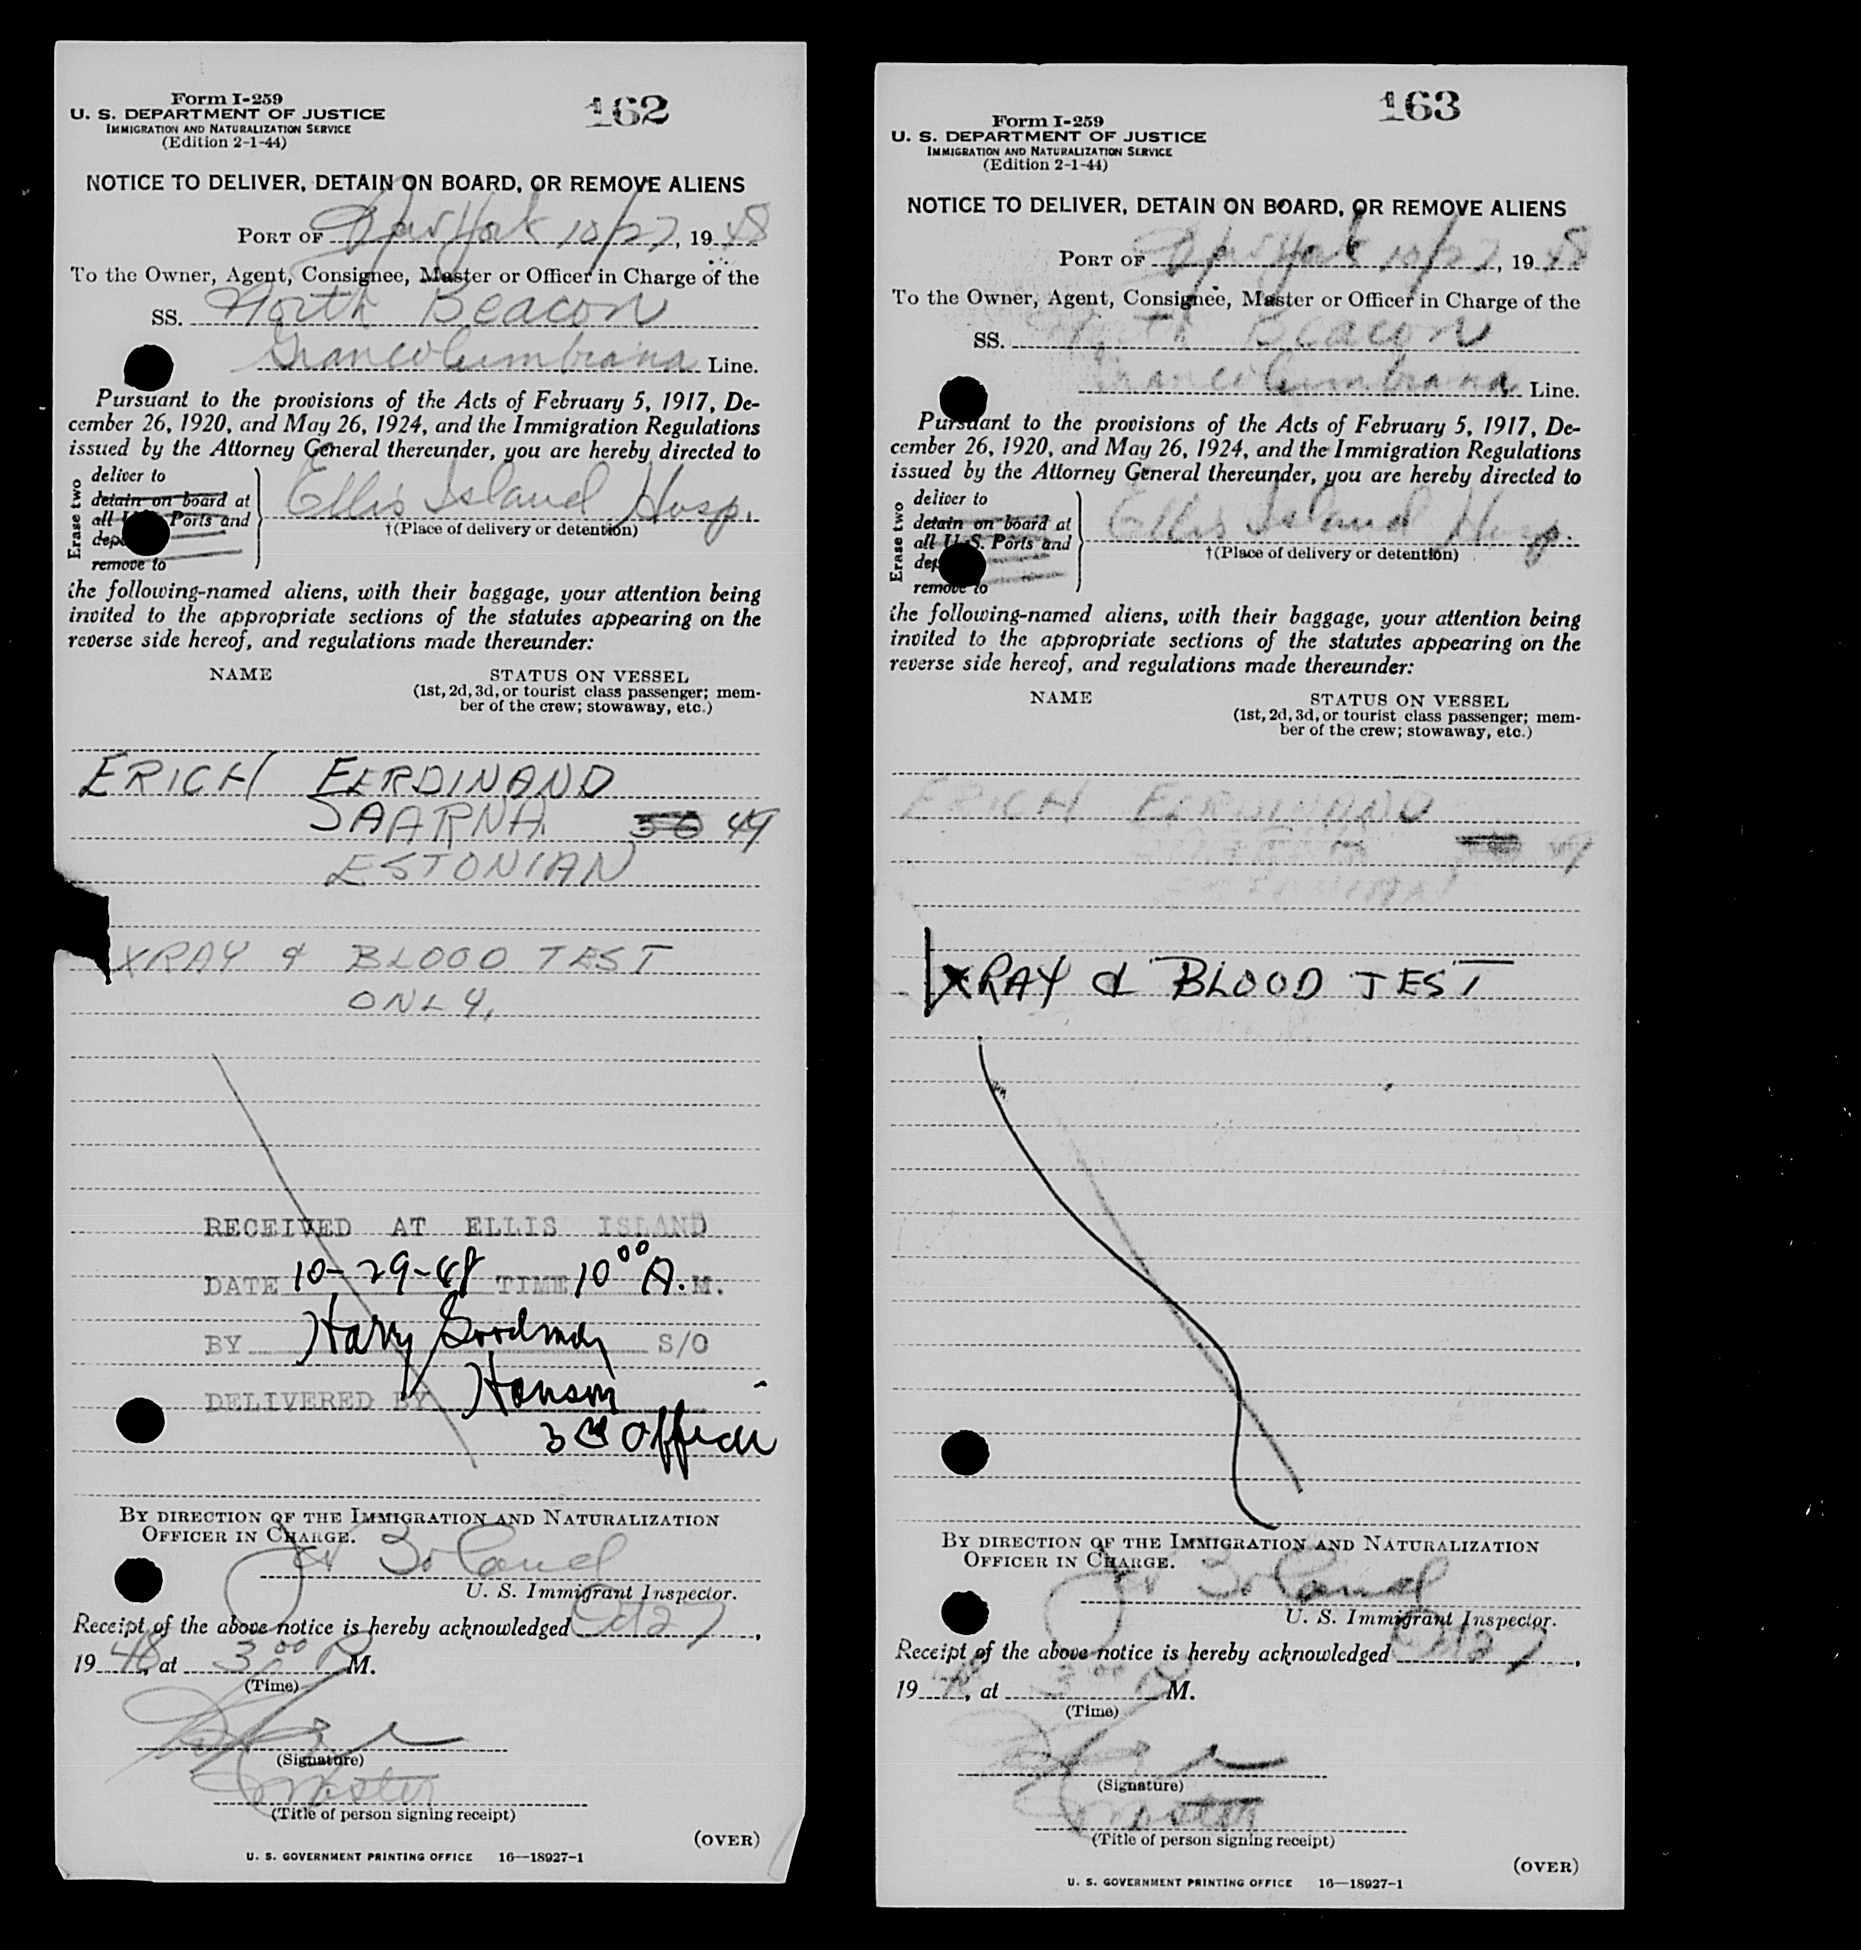 Form I-259
U. S. DEPARTMENT OF JUSTICE
IMMIGRATION AND NATURALIZATION SERVICE
(Edition 2-1-44)
162
NOTICE TO DELIVER, DETAIN ON BOARD, OR REMOVE ALIENS
PORT OF New York 10/27, 1948
To the Owner, Agent, Consignee, Master or Officer in Charge of the
SS. North Beacon
Grancolumbiana Line.
Pursuant to the provisions of the Acts of February 5, 1917, De-
cember 26, 1920, and May 26, 1924, and the Immigration Regulations
issued by the Attorney General thereunder, you are hereby directed to
Erase two
deliver to
detain on board at
all U Ports and
dep
remove to
Ellis Island Hosp.
†(Place of delivery or detention)
the following-named aliens, with their baggage, your attention being
invited to the appropriate sections of the statutes appearing on the
reverse side hereof, and regulations made thereunder:
NAME STATUS ON VESSEL
(1st, 2d, 3d, or tourist class passenger; mem-
ber of the crew; stowaway, etc.)
ERICH FERDINAND
SAARNA 50 49
ESTONIAN
XRAY & BLOOD TEST
ONLY,
RECEIVED AT ELLIS ISLAND
DATE 10-29-48 TIME 10 00 A.M.
BY Harry Goodman S/O
DELIVERED BY Hanson
3rd Officer
BY DIRECTION OF THE IMMIGRATION AND NATURALIZATION
OFFICER IN CHARGE.
U. S. Immigrant Inspector.
Receipt of the above notice is hereby acknowledged Oct 27,
1948, at 3 00 P M.
(Time)
(Signature)
Master
(Title of person signing receipt)
(OVER)
U. S. GOVERNMENT PRINTING OFFICE 16—18927-1
Form I-259
U. S. DEPARTMENT OF JUSTICE
IMMIGRATION AND NATURALIZATION SERVICE
(Edition 2-1-44)
163
NOTICE TO DELIVER, DETAIN ON BOARD, OR REMOVE ALIENS
PORT OF New York 10/27, 1948
To the Owner, Agent, Consignee, Master or Officer in Charge of the
SS. North Beacon
Grancolumbiana Line.
Pursuant to the provisions of the Acts of February 5, 1917, De-
cember 26, 1920, and May 26, 1924, and the Immigration Regulations
issued by the Attorney General thereunder, you are hereby directed to
Erase two
deliver to
detain on board at
all U.S. Ports and
dep
remove to
Ellis Island Hosp.
†(Place of delivery or detention)
the following-named aliens, with their baggage, your attention being
invited to the appropriate sections of the statutes appearing on the
reverse side hereof, and regulations made thereunder:
NAME STATUS ON VESSEL
(1st, 2d, 3d, or tourist class passenger; mem-
ber of the crew; stowaway, etc.)
ERICH FERDINAND
49
XRAY & BLOOD TEST
BY DIRECTION OF THE IMMIGRATION AND NATURALIZATION
OFFICER IN CHARGE.
U. S. Immigrant Inspector.
Receipt of the above notice is hereby acknowledged Oct 27,
1948, at 3 00 P M.
(Time)
(Signature)
Master
(Title of person signing receipt)
(OVER)
U. S. GOVERNMENT PRINTING OFFICE 16—18927-1